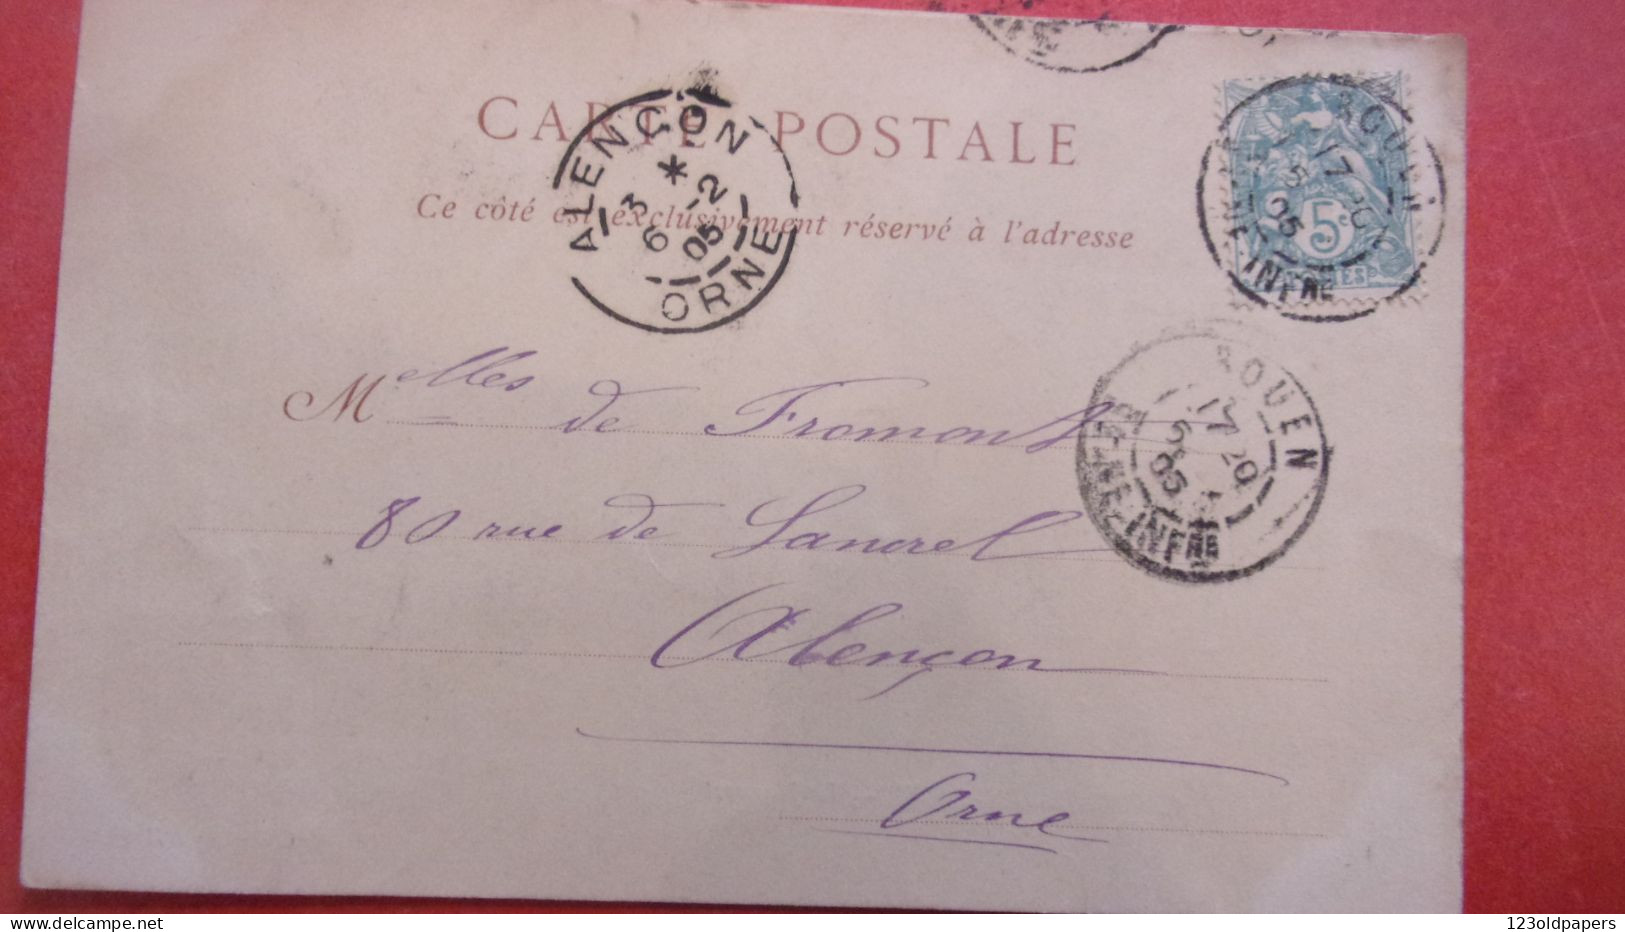 CARTE POSTALE
Ce côté est exclusivement réservé à l'adresse
ALENÇON
*
3 -2
6 05
ORNE
ROUEN
17
5
05
INFRE
5c
Melles de Fromont
80 rue de Lancrel
Alençon
Orne
ROUEN
17 20
5
05
SEINE-INFRE
123oldpapers